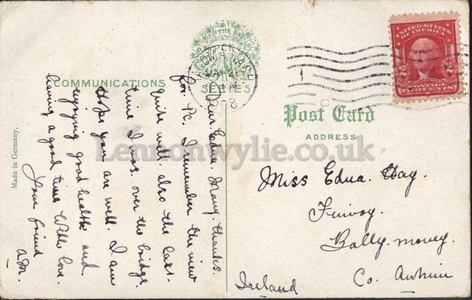 COMMUNICATIONS
Dear Edna. Many thanks
for Pc. I remember the view
quite well. also the last
time I was. over the bridge.
Hope you are well. I am
enjoying good health and
having a good time With love
Your friend
THE
SERIES
08
UNITED STATES OF AMERICA
Post Card
ADDRESS
Miss Edna. Hay.
Finvoy.
Bally. money.
Co. Antrim
Ireland
Made in Germany.
Lennonwylie.co.uk